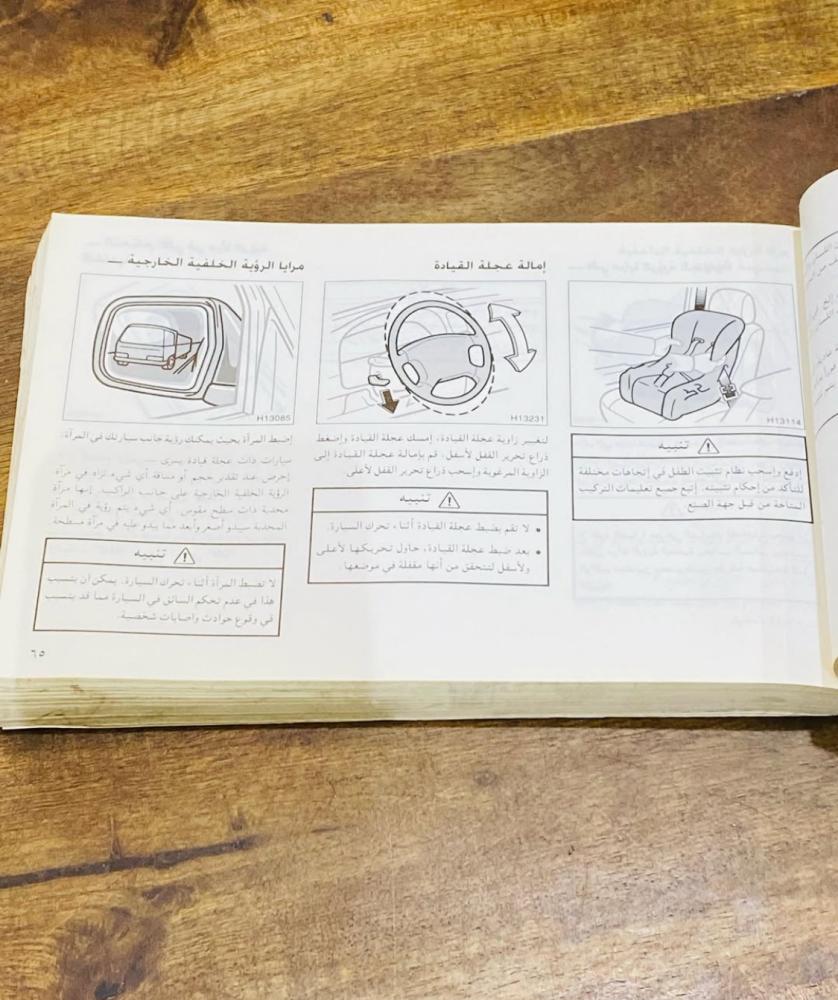 H13114
تنبيه
إدفع واسحب نظام تثبيت الطفل في إتجاهات مختلفة
للتأكد من إحكام تثبيته. إتبع جميع تعليمات التركيب
المتاحة من قبل جهة الصنع
إمالة عجلة القيادة
H13231
لتغيير زاوية عجلة القيادة، إمسك عجلة القيادة وإضغط
ذراع تحرير القفل لأسفل، قم بإمالة عجلة القيادة إلى
الزاوية المرغوبة وإسحب ذراع تحرير القفل لأعلى.
تنبيه
• لا تقم بضبط عجلة القيادة أثناء تحرك السيارة.
• بعد ضبط عجلة القيادة، حاول تحريكها لأعلى
ولأسفل لتتحقق من أنها مقفلة في موضعها.
مرايا الرؤية الخلفية الخارجية —
H13085
إضبط المرآة بحيث يمكنك رؤية جانب سيارتك في المرآة.
سيارات ذات عجلة قيادة يسرى —
إحرص عند تقدير حجم أو مسافة أي شيء تراه في مرآة
الرؤية الخلفية الخارجية على جانب الراكب. إنها مرآة
محدبة ذات سطح مقوس. أي شيء يتم رؤية في المرآة
المحدبة سيبدو أصغر وأبعد مما يبدو عليه في مرآة مسطحة.
تنبيه
لا تضبط المرآة أثناء تحرك السيارة. يمكن أن يتسبب
هذا في عدم تحكم السائق في السيارة مما قد يتسبب
في وقوع حوادث وإصابات شخصية.
٦٥